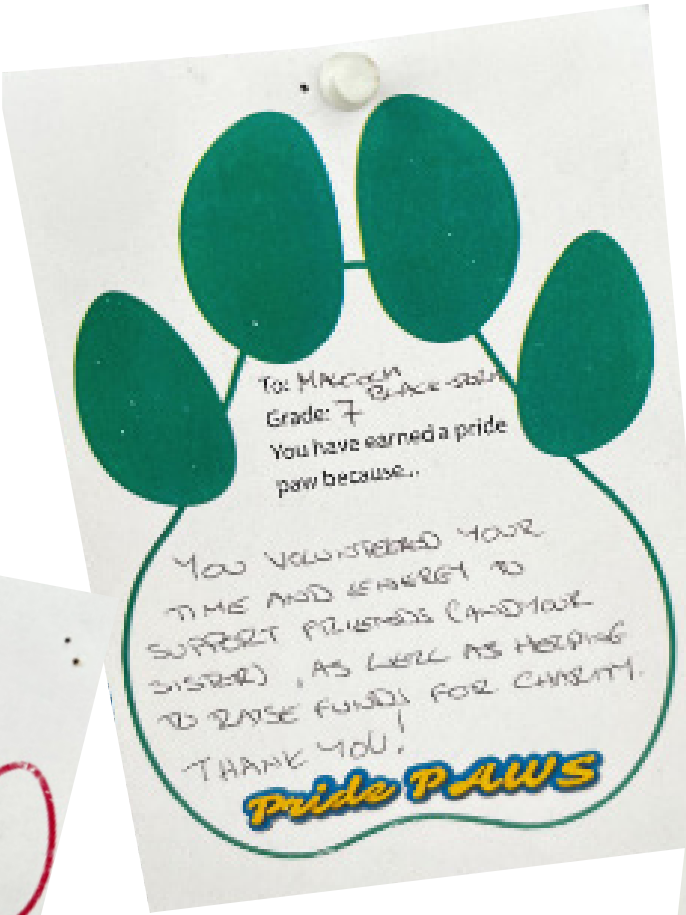 To: MALCOLM
Grade: 7
You have earned a pride
paw because...
YOU VOLUNTEERED YOUR
TIME AND ENERGY TO
SUPPORT FRIENDS (AND YOUR
SISTER), AS WELL AS HELPING
TO RAISE FUNDS FOR CHARITY.
THANK YOU!
Pride PAWS